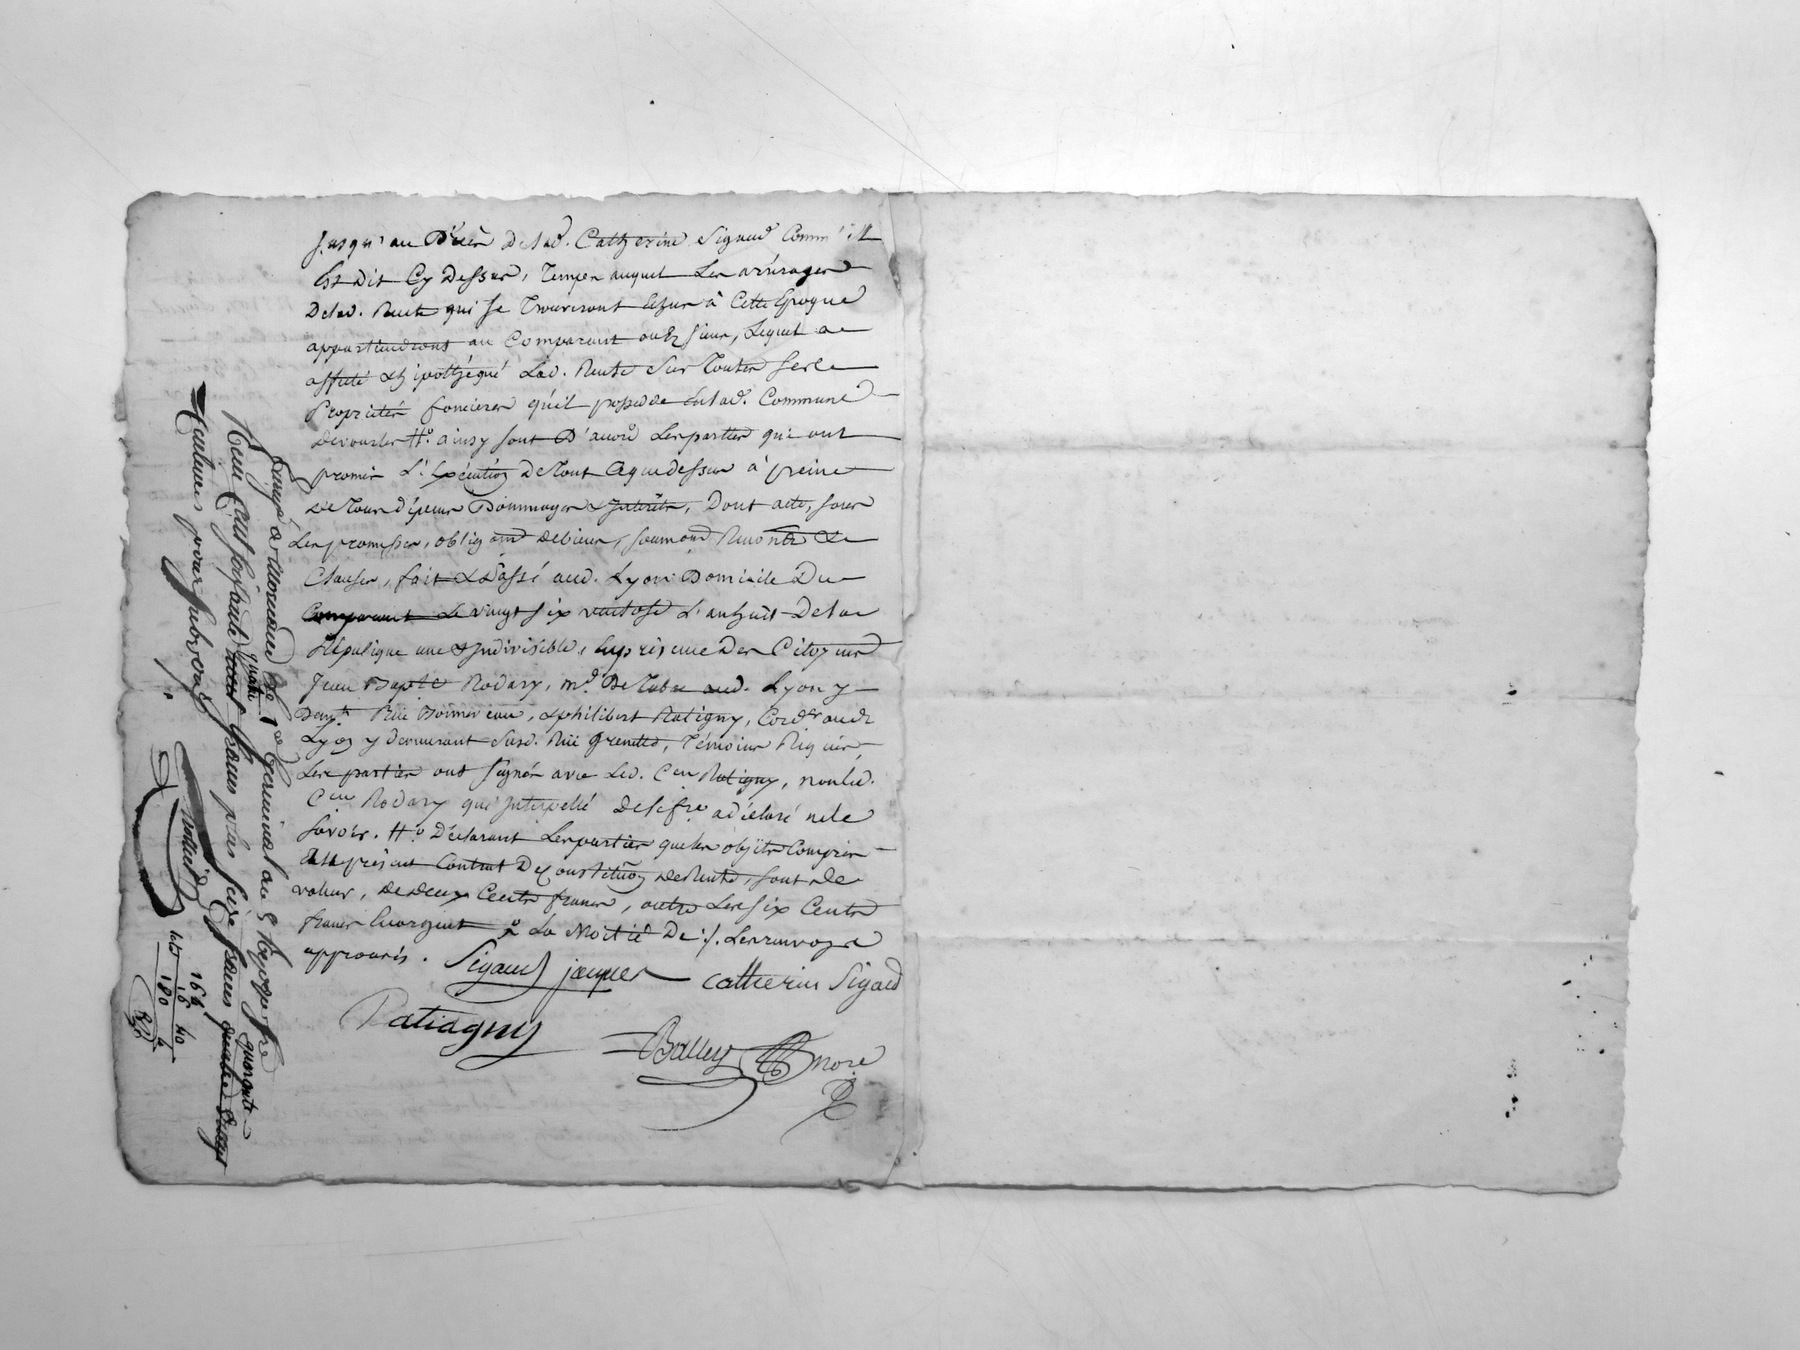 Jusqu'au Décès de lad. Catherine Sigaud Comm' il
Est Dit Cy Dessus, Temps auquel Les arérages
De lad. Rente qui se Trouveront Echus à Cette Epoque
appartiendront au Comparant oudt sieur, Lequel a
affecté & hipothéqué Lad. Rente Sur Toutes ses
Propriétés foncieres qu'il possede En lad. Commune
Ho. ainsy sont D'accord Les parties qui ont
promis L'Exécution De Tout Ce que dessus à peine
De Tous dépens Dommages & Intérêts, Dont acte, sous
Les promesses, obligaons de biens, soumons Renontns &
Clauses, fait & Passé aud. Lyon Domicile Du
Comparant Le vingt six ventose L'an huit De la
République une & Indivisible, En présence Des Citoyens
Jean Bapte Rodary, md. De aud. Lyon y
Demt. Rüe & philibert Ratigny, Cordr audt
Lyon y demeurant susd. Rüe Grenette, Témoins Requis
Les parties ont signés avec Led. Cen Ratigny, non led.
Cen Rodary qui Interpellé De le fre a déclaré ne le
savoir. Ho Déclarant Les parties que les objets Compris
au présent Contrat De Constitution de Rente, sont de
valeur, de deux Cents francs, outre Les six Cents
francs La Moitié De ./. Les renvoys
approuvés.
Sigaud jacques Catherin Sigaud
Ratiagny
Balley more
Enregé à le 1er Germinal an 8 Reçu
Cent soixante quatre francs plus seize francs quarante
Centimes pour subvent.
164
16 40
180 4